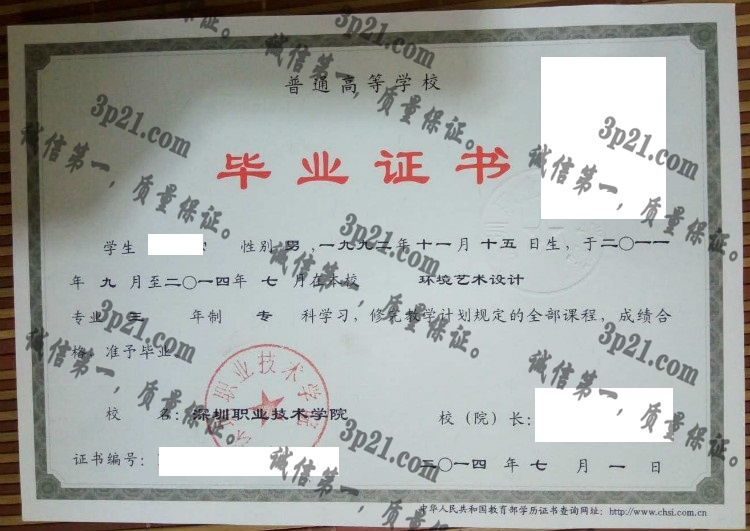 普通高等学校
毕业证书
学生 性别 男 ,一九九二年 十一月 十五 日生，于二〇一一
年 九 月至二〇一四年 七 月在本校 环境艺术设计
专业 三 年制 专 科学习，修完教学计划规定的全部课程，成绩合
格，准予毕业。
深圳职业技术学院
校 名：深圳职业技术学院 校（院）长：
证书编号： 二〇一四 年 七 月 一 日
中华人民共和国教育部学历证书查询网址：http://www.chsi.com.cn
3p21.com
诚信第一，质量保证。
3p21.com
诚信第一，质量保证。
3p21.com
诚信第一，质量保证。
3p21.com
诚信第一，质量保证。
3p21.com
诚信第一，质量保证。
3p21.com
诚信第一，质量保证。
3p21.com
诚信第一，质量保证。
3p21.com
诚信第一，质量保证。